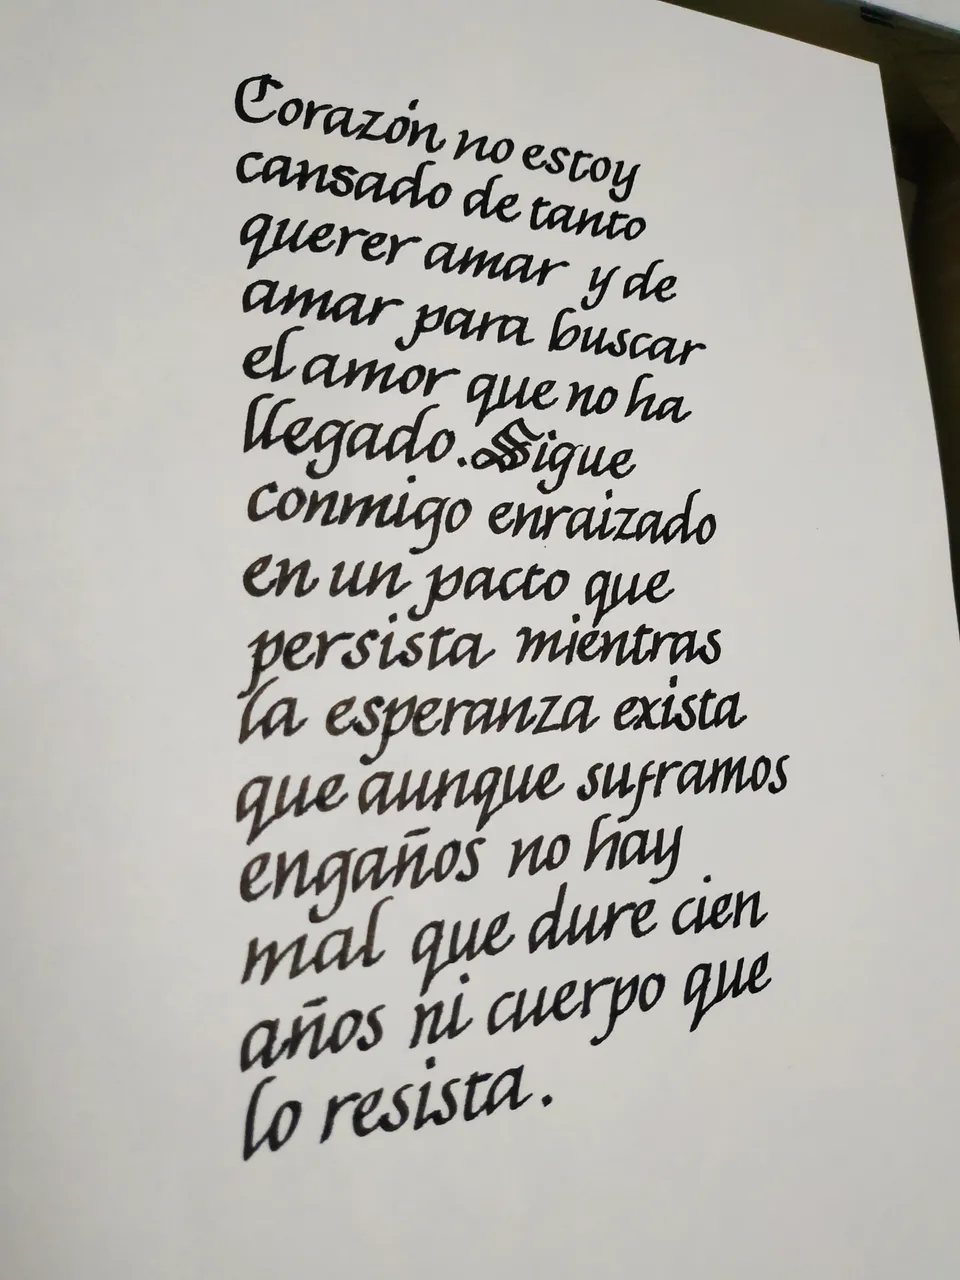 Corazón no estoy
cansado de tanto
querer amar y de
amar para buscar
el amor que no ha
llegado. Sigue
conmigo enraizado
en un pacto que
persista mientras
la esperanza exista
que aunque suframos
engaños no hay
mal que dure cien
años ni cuerpo que
lo resista.